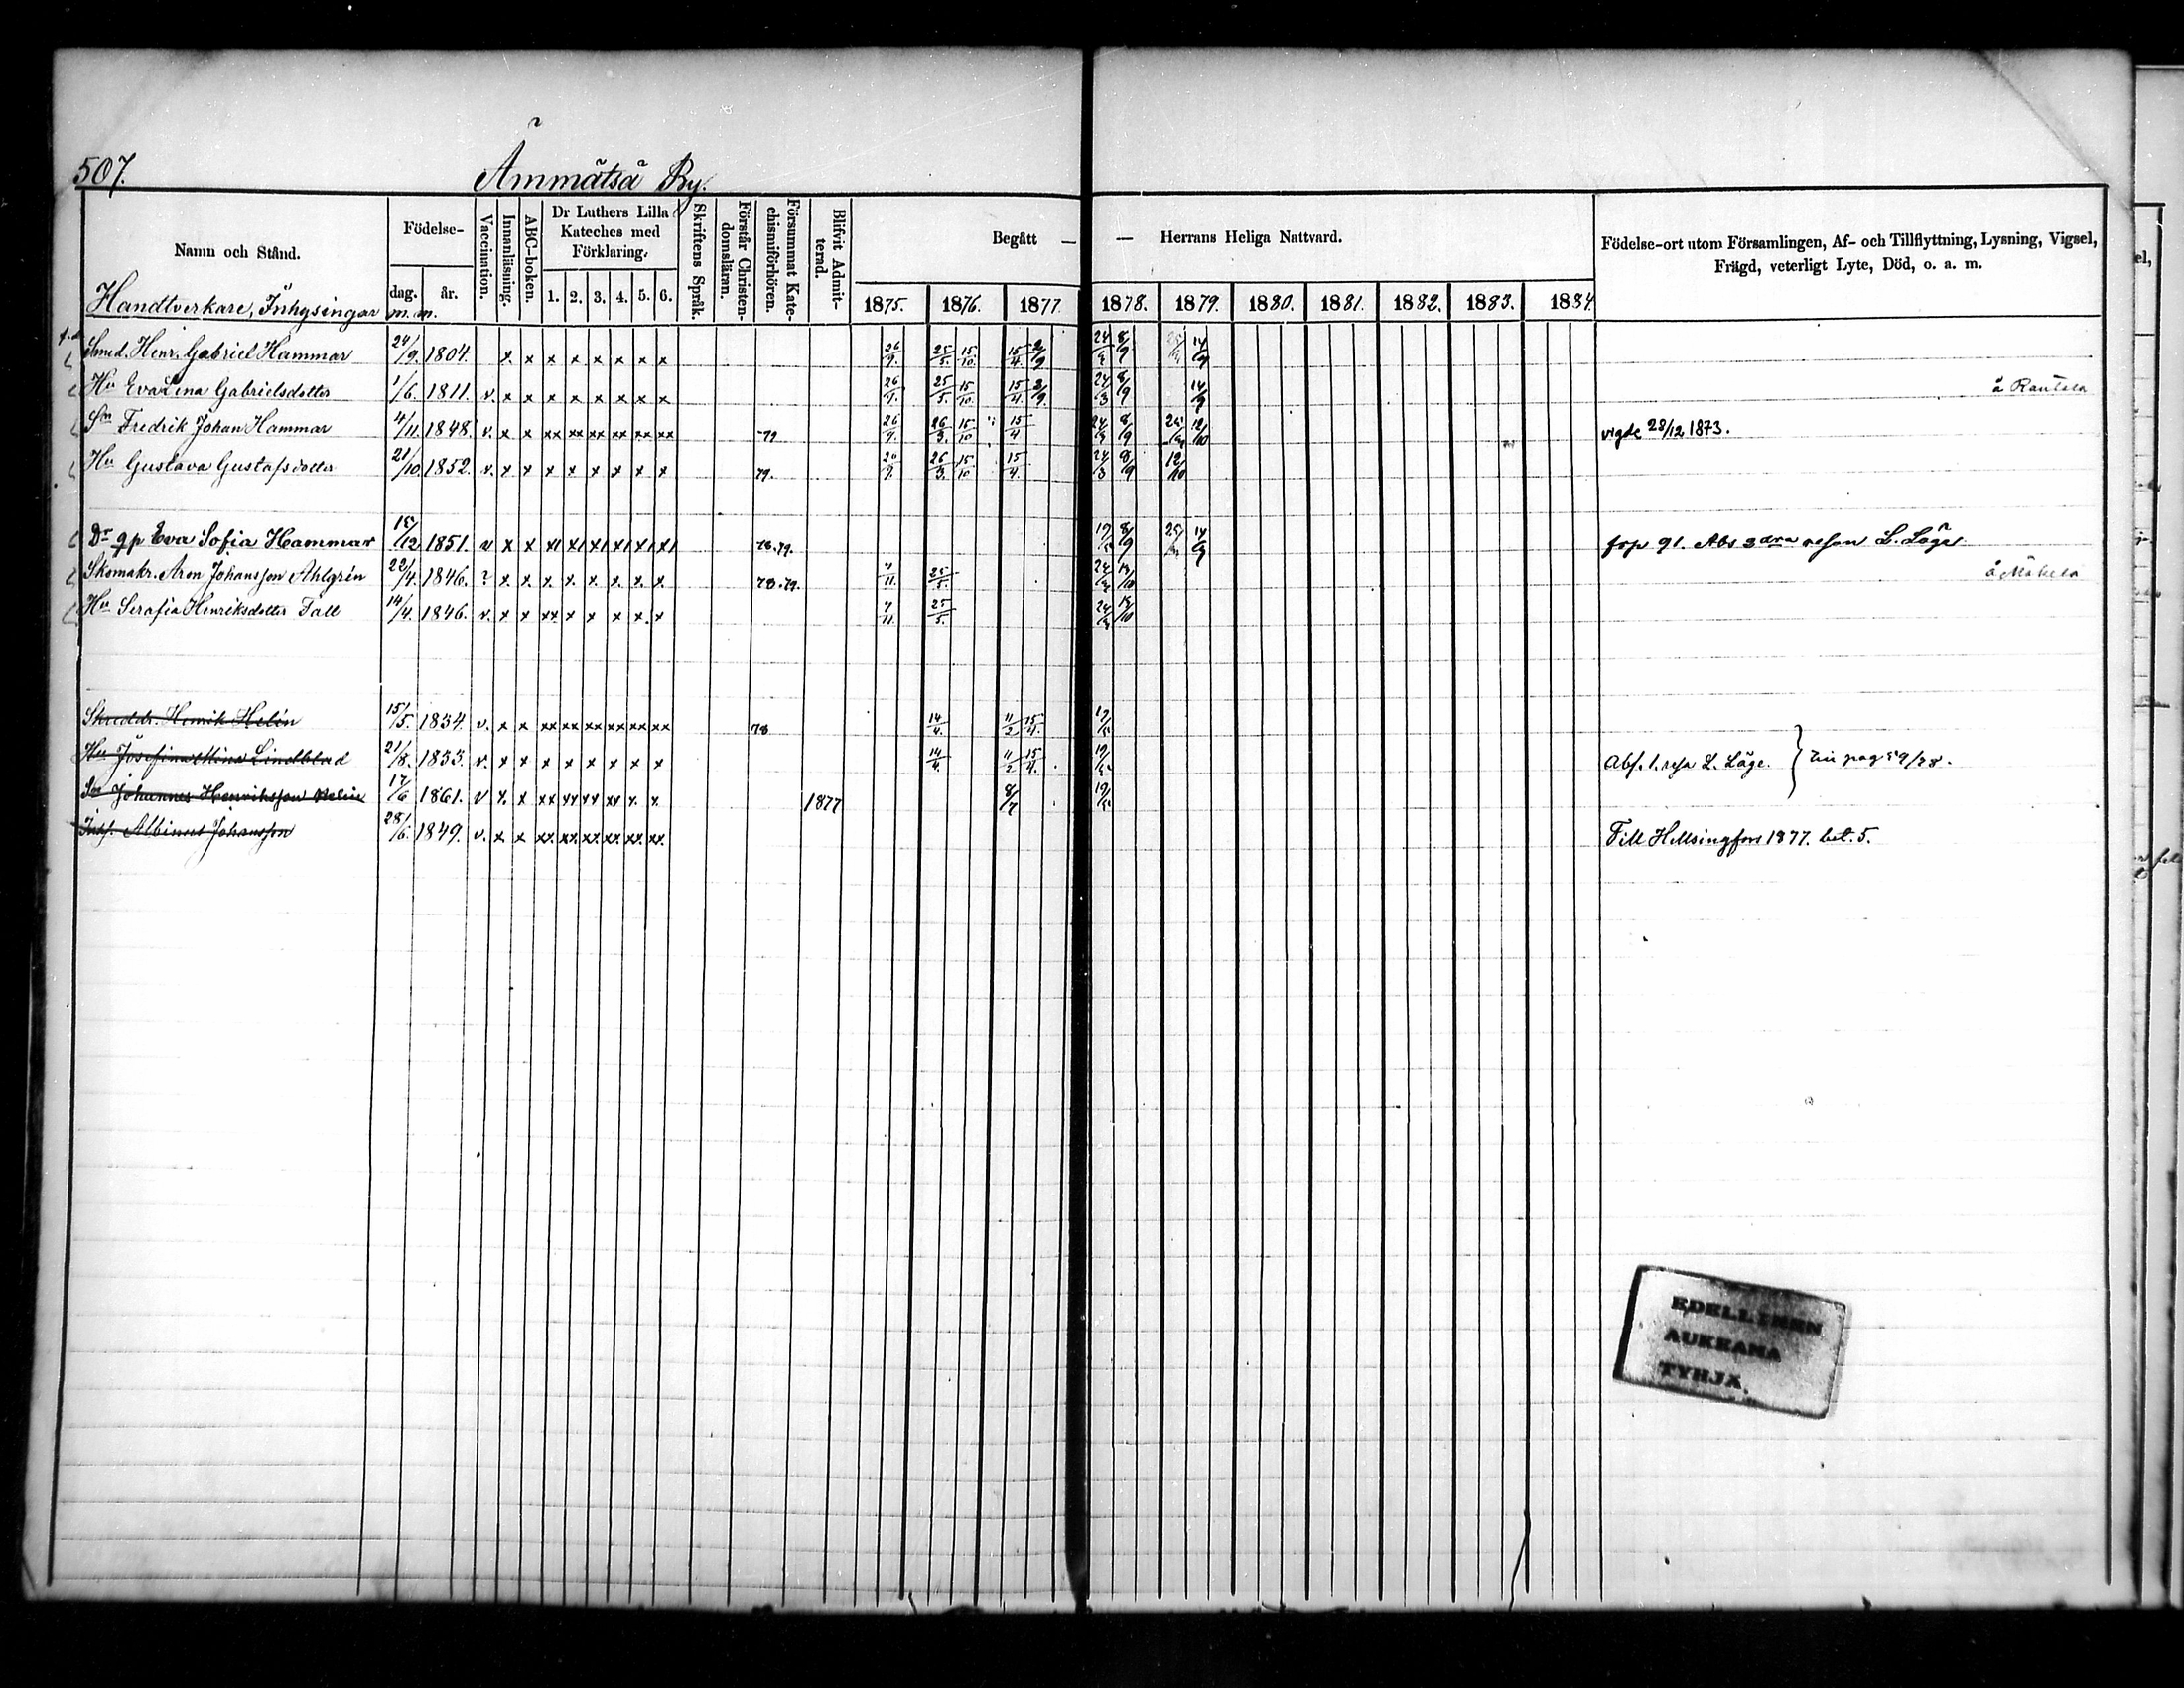 507.
Ämmätsä By.
Namn och Stånd.
Födelse-
dag.
år.
Vaccination.
Innanläsning.
ABC-boken.
Dr Luthers Lilla
Kateches med
Förklaring.
1. 2. 3. 4. 5. 6.
Skriftens Språk.
Förstår Christen-
domsläran.
Försummat Kate-
chismiförhören.
Blifvit Admit-
terad.
Begått — — Herrans Heliga Nattvard.
1875. 1876. 1877. 1878. 1879. 1880. 1881. 1882. 1883. 1884.
Födelse-ort utom Församlingen, Af- och Tillflyttning, Lysning, Vigsel,
Frägd, veterligt Lyte, Död, o. a. m.
Handtverkare, Inhysingar m. m.
Smed. Henr. Gabriel Hammar 24/9. 1804. x x x x x x x x 26/9. 25/5. 15/10. 15/4. 2/9 24/3 8/9 14/9
Hu Eva Lina Gabrielsdotter 1/6. 1811. v. x x x x x x x x 26/9. 25/5. 15/10. 15/4. 2/9. 24/3 8/9 14/9 å Rautela
Sn Fredrik Johan Hammar 4/11. 1848. v. x x xx xx xx xx xx xx 79 26/9. 26/3. 15/10 15/4 24/3 8/9 12/10 vigde 28/12 1873.
Hu Gustava Gustafsdotter 21/10. 1852. v. x x x x x x x x 79. 26/9. 26/3. 15/10 15/4. 24/3 8/9 12/10
Dr qp Eva Sofia Hammar 15/12 1851. v x x x1 x1 x1 x1 x1 x1 78.79. 8/9 14/9 frp 91. Abs 3dra resan L. Läge
Skomakr. Aron Johansson Ahlgrén 22/4. 1846. ? x x. x. x. x. x. x. x 78.79. 7/11. 25/5. å Mäkelä
Hu Serafia Henriksdotter Fall 14/4. 1846. v. x x xx. x x x x. x 7/11. 25/5.
Skreddr. Henrik Helén 15/5. 1834. v. x x xx xx xx xx xx xx 78 14/4. 11/2 15/4.
Hu Josefina Mina Lindblad 21/8. 1833. v. x x x x x x x x 14/4. 11/2 15/4. Abs. 1. resa L. Läge.
Sn Johannes Henriksson Helin 17/6 1861. v x x xx xx xx xx x. x. 1877 8/7
Inhs. Albinus Johansson 28/6. 1849. v. x x xx. xx. xx. xx. xx. xx. Till Hellsingfors 1877. bet. 5.
EDELLINEN
AUKEAMA
TYHJÄ.